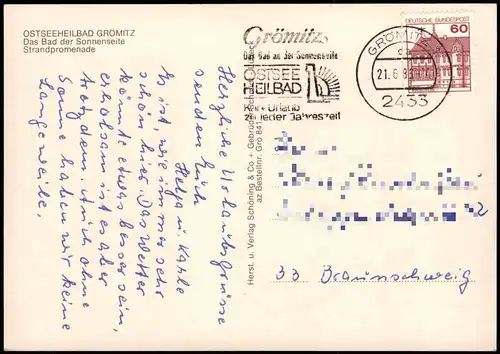 OSTSEEHEILBAD GRÖMITZ
Das Bad der Sonnenseite
Strandpromenade
Herzliche Urlaubsgrüsse
senden Euch
Helga u. Karle
Es ist, wie immer sehr
schön hier. Das Wetter
könnte etwas besser sein,
erholsam ist es aber
trotzdem. Auch ohne
Sonne haben wir keine
Langeweile.
Herst. u. Verlag Schöning & Co + Gebrüder Schmidt
az Bestellnr. Grö 841
Grömitz
Das Bad an der Sonnenseite
OSTSEE
HEILBAD
Kur + Urlaub
zu jeder Jahreszeit
GRÖMITZ
21.6.8
2433
DEUTSCHE BUNDESPOST
60
33 Braunschweig